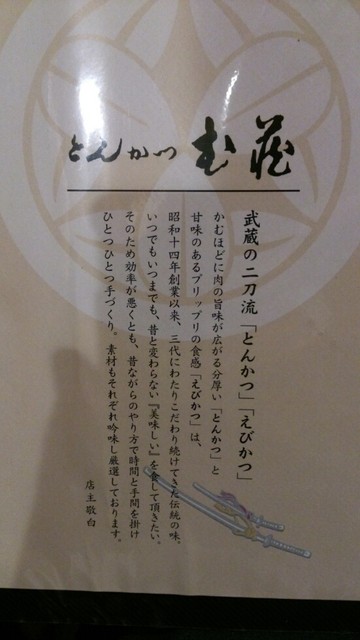 とんかつ むさ蔵
武蔵の二刀流「とんかつ」「えびかつ」
かむほどに肉の旨味が広がる分厚い「とんかつ」と
甘味のあるプリップリの食感「えびかつ」は、
昭和十四年創業以来、三代にわたりこだわり続けてきた伝統の味、
いつでもいつまでも、昔と変わらない『美味しい』を食して頂きたい、
そのため効率が悪くとも、昔ながらのやり方で時間と手間を掛け
ひとつひとつ手づくり。素材もそれぞれ吟味し厳選しております。
店主敬白